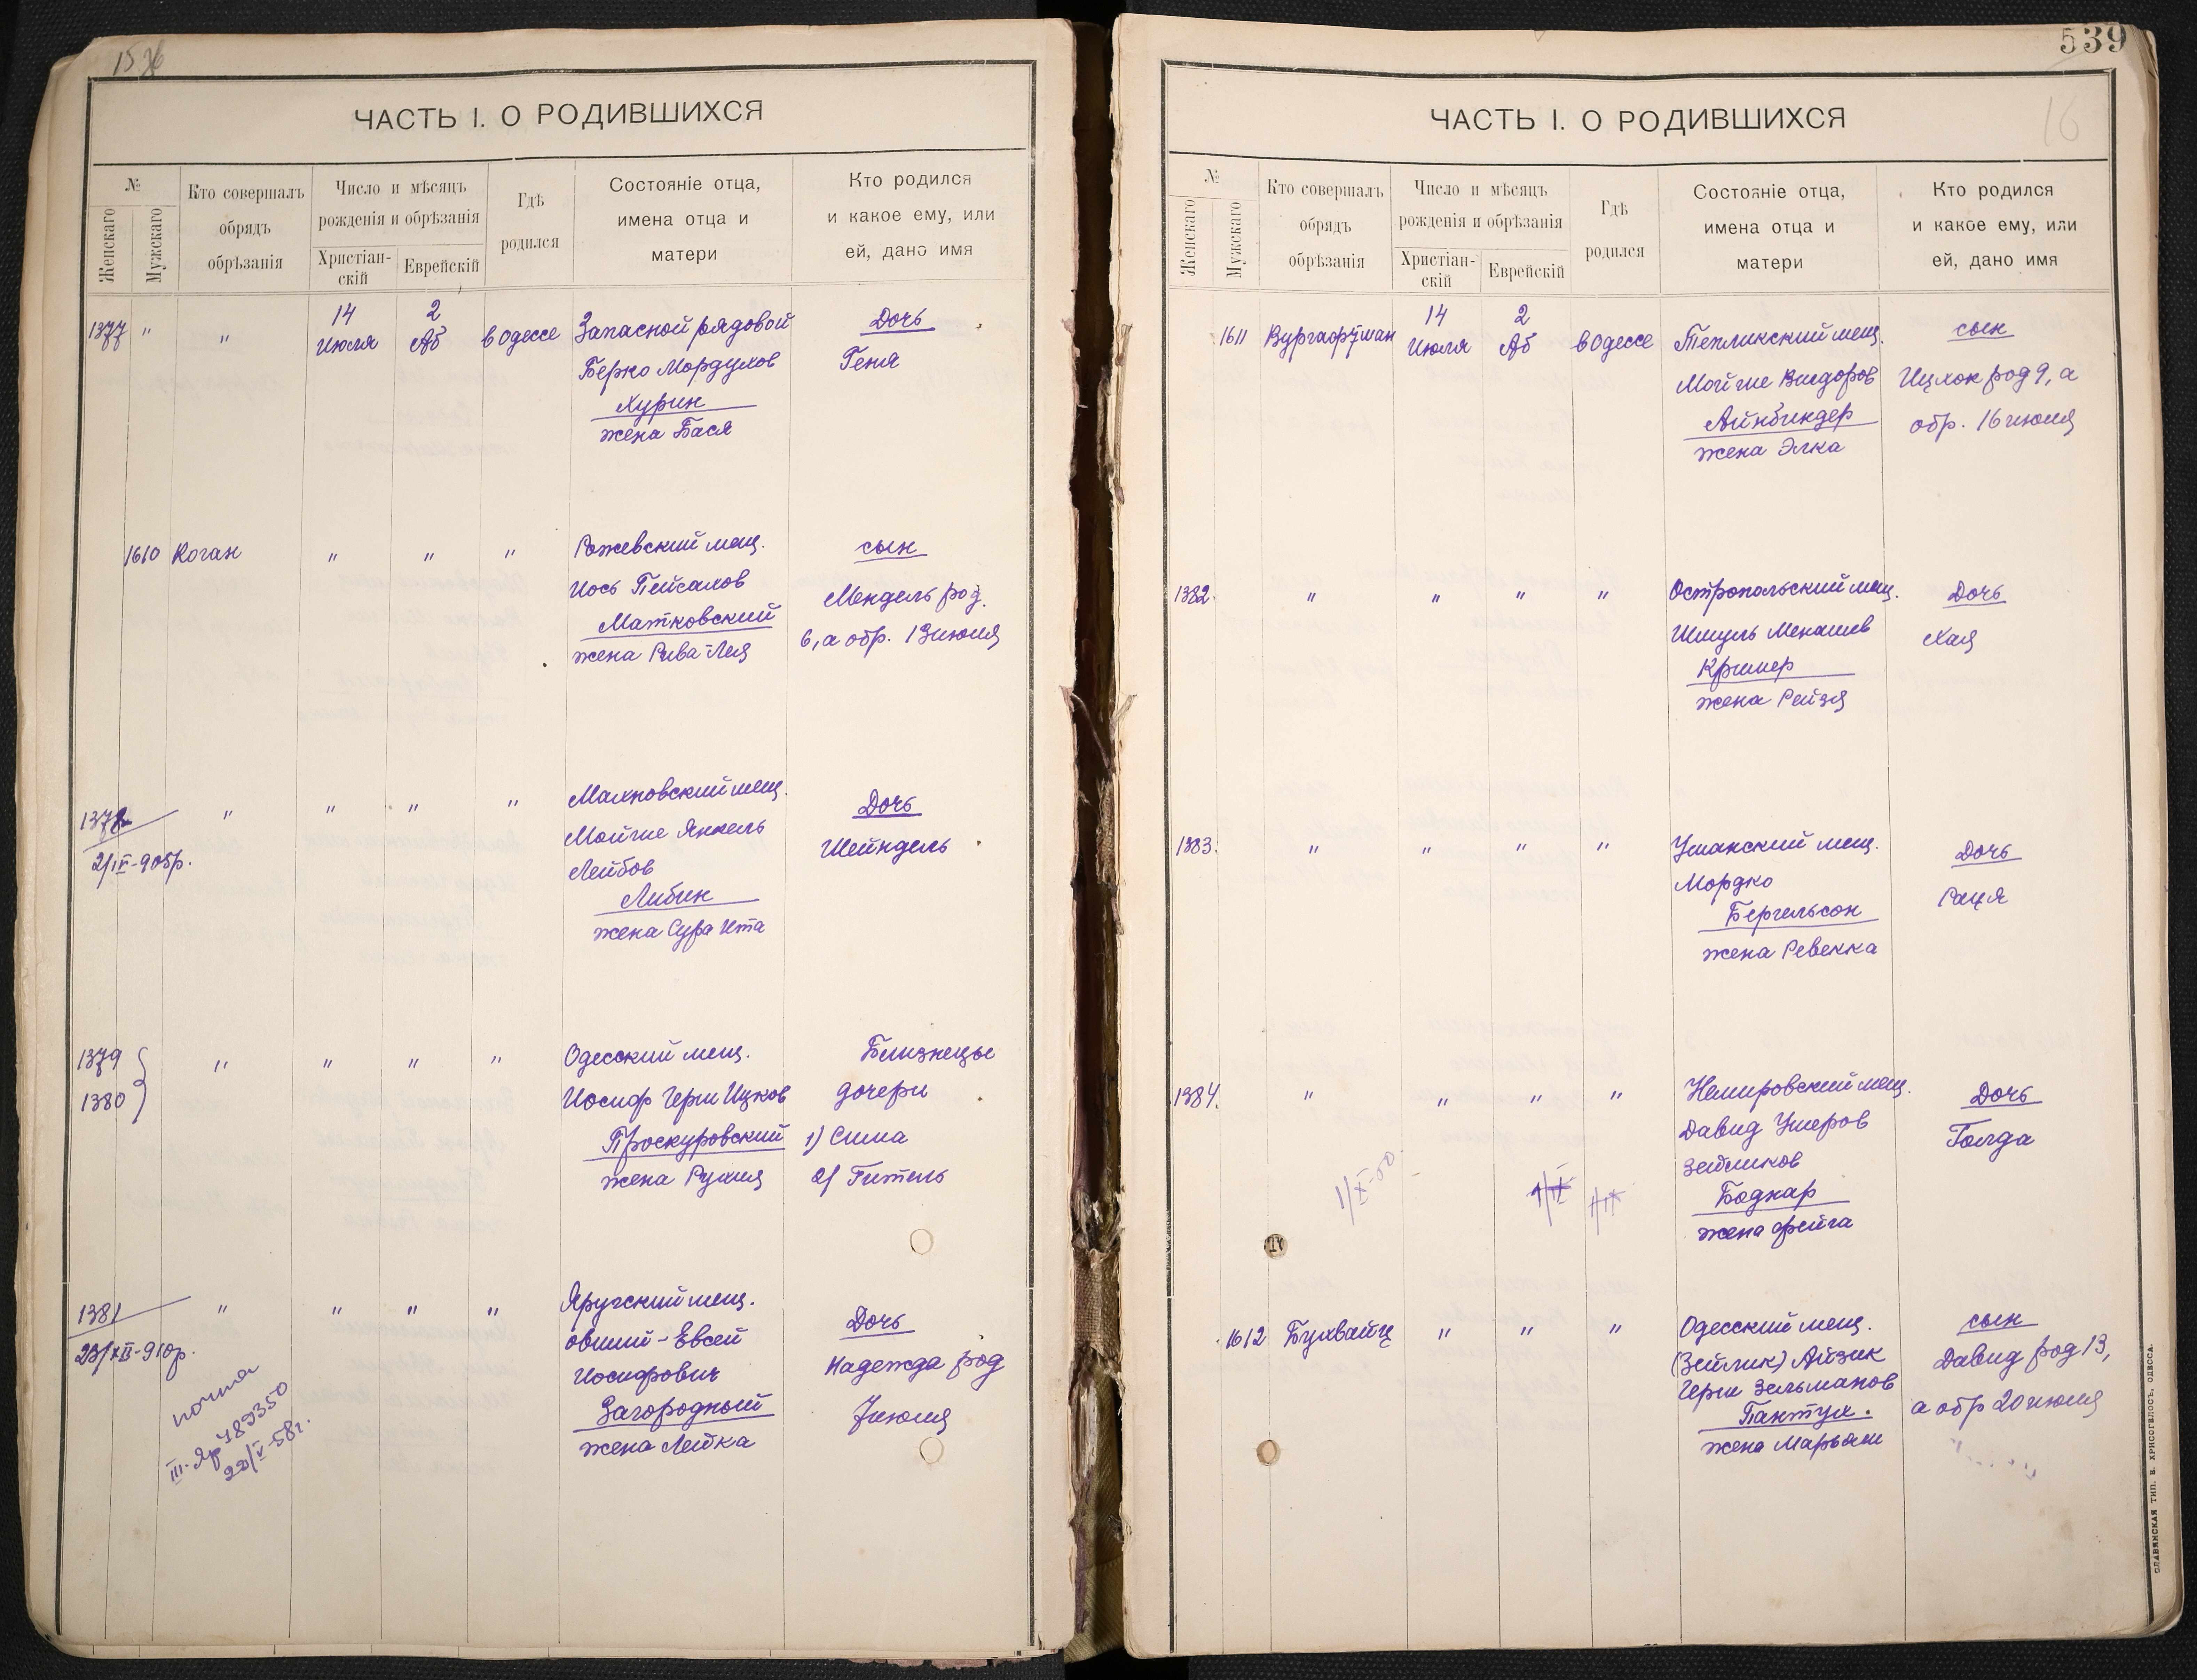 1536
ЧАСТЬ I. О РОДИВШИХСЯ
№
Женскаго
Мужскаго
Кто совершалъ
обрядъ
обрѣзанія
Число и мѣсяцъ
рожденія и обрѣзанія
Христіан-
скій
Еврейскій
Гдѣ
родился
Состояніе отца,
имена отца и
матери
Кто родился
и какое ему, или
ей, дано имя
1377 " " 14 Июля 2 Аб в Одессе
Запасной рядовой
Берко Мордухов
Хурин
жена Бася
Дочь
Геня
1610 Коган " " "
Ражевский мещ.
Иось Пейсахов
Матковский
жена Рива-Лея
сын
Мендель род.
6, а обр. 13 июля
1378 " " " "
2/IV-9 обр.
Махновский мещ.
Мойше Янкель
Лейбов
Либин
жена Сура Ита
Дочь
Шейндель
1379
1380
" " " "
Одесский мещ.
Иосиф Герш Ицков
Проскуровский
жена Рухля
Близнецы
дочери
1) Сима
2) Гитель
1381 " " " "
23/XII-910р.
почта
III-Яр 789350
22/V-58г.
Яругский мещ.
овший-Евсей
Иосифович
Загородный
жена Лейка
Дочь
Надежда род
7 июля
539
16
ЧАСТЬ I. О РОДИВШИХСЯ
№
Женскаго
Мужскаго
Кто совершалъ
обрядъ
обрѣзанія
Число и мѣсяцъ
рожденія и обрѣзанія
Христіан-
скій
Еврейскій
Гдѣ
родился
Состояніе отца,
имена отца и
матери
Кто родился
и какое ему, или
ей, дано имя
1611 Вургафтман 14 Июля 2 Аб в Одессе
Тепликский мещ.
Мойше Вигдоров
Айнбиндер
жена Элка
сын
Ицхок род 9, а
обр. 16 июля
1382. " " " "
Остропольский мещ.
Шмуль Менашев
Кример
жена Рейзя
Дочь
Хая
1383. " " " "
Уманский мещ.
Мордко
Бергельсон
жена Ревекка
Дочь
Рася
1384. " " " "
Немировский мещ.
Давид Ушеров
Зейликов
Боднар
жена Фейга
Дочь
Голда
1/X-50.
1612 Бухвайц " " "
Одесский мещ.
(Зейлик) Айзик
Герш Зельманов
Пантух.
жена Марьям
сын
Давид род 13,
а обр 20 июля
СЛАВЯНСКАЯ ТИП. Н. ХРИСОГЕЛОСЪ, ОДЕССА.